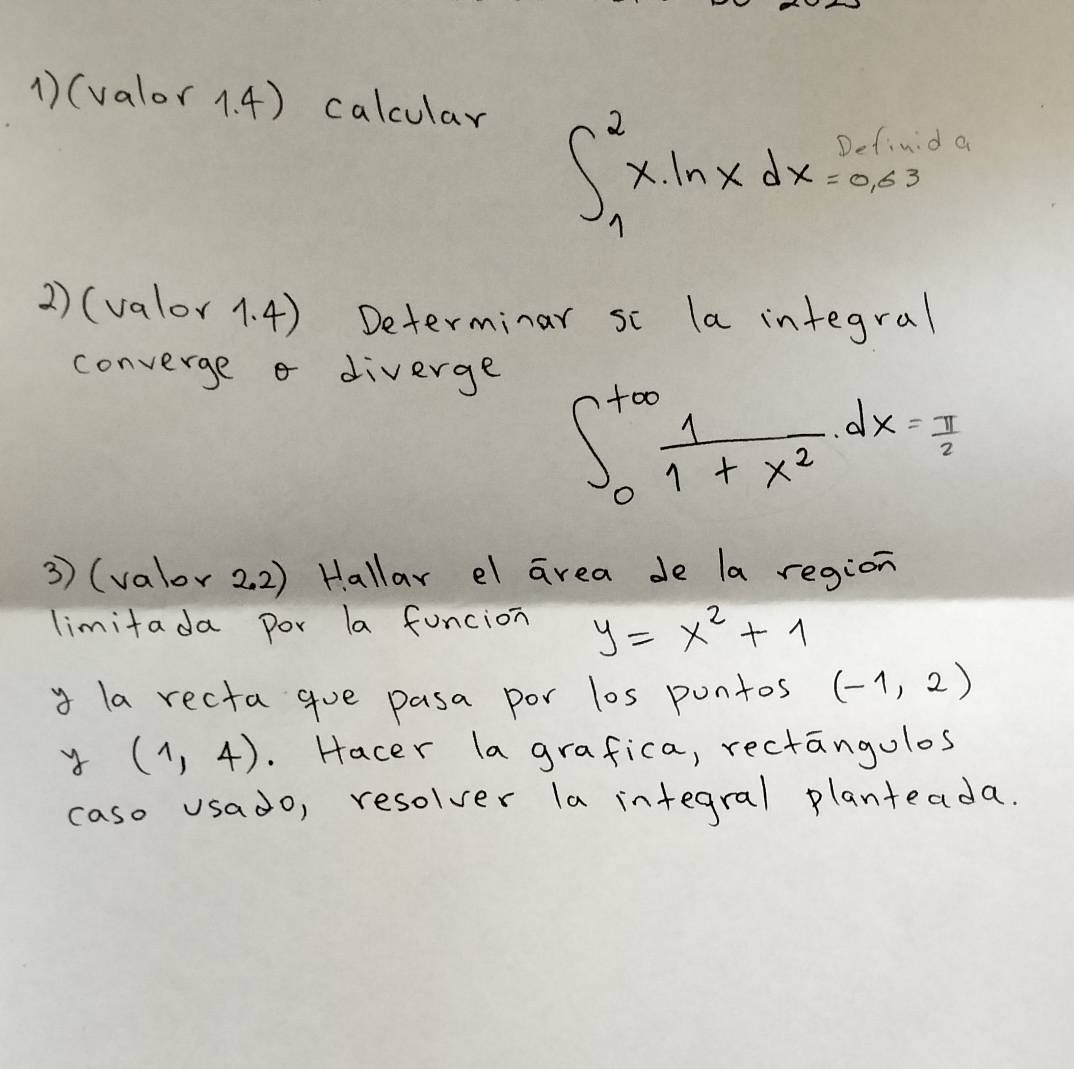 1) (valor 1.4) calcular
∫₁² x.ln x dx = 0,63
Definida
2) (valor 1.4) Determinar si la integral
converge o diverge
∫₀^+∞ 1/(1 + x²) .dx = π/2
3) (valor 2.2) Hallar el ārea de la regiōn
limitada por la funciōn y = x² + 1
y la recta que pasa por los puntos (-1, 2)
y (1, 4). Hacer la grafica, rectāngulos
caso usado, resolver la integral planteada.